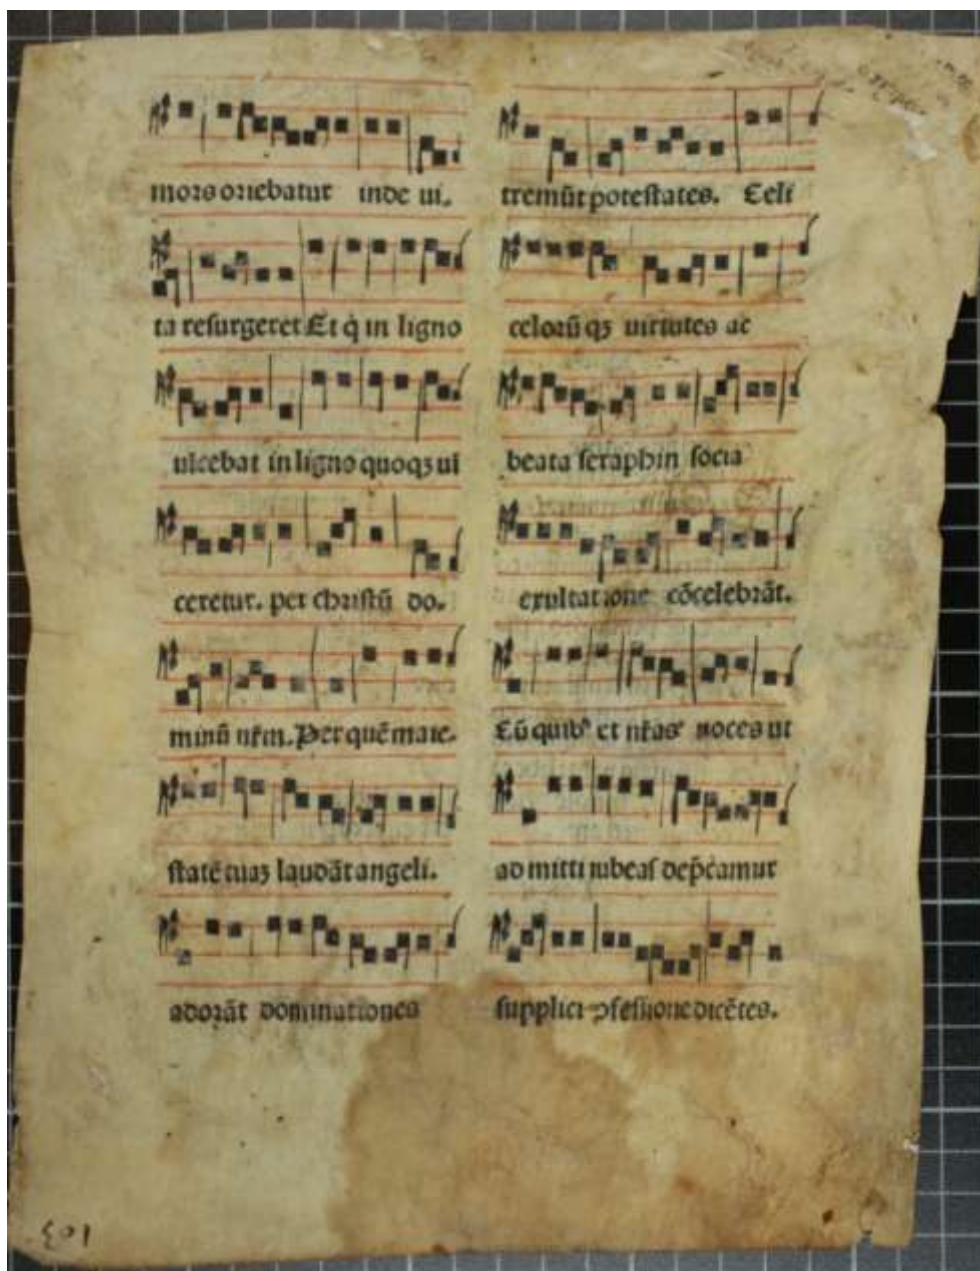 mors oriebatur inde ui.
ta resurgeret Et q̇ in ligno
uĩcebat in ligno quoqꝫ ui
ceretur. per christũ do.
minũ nr̃m. Per quẽ maie.
statẽ tuaꝫ laudãt angeli.
adorãt dominationes
tremũt potestates. Celi
celorũ qꝫ uirtutes ac
beata seraphin socia
exultatione cõcelebrãt.
Cũ quibꝰ et nr̃as uoces ut
admitti iubeas dep̃camur
supplici ↄfessione dicẽtes.
103